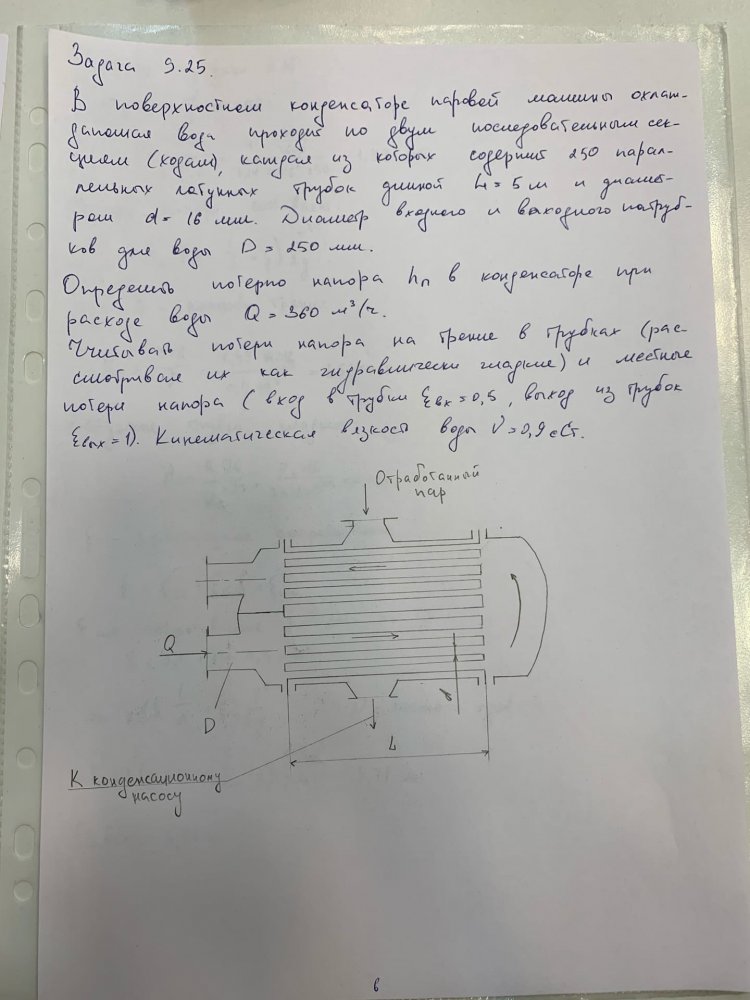 Задача 9.25.
В поверхностном конденсаторе паровой машины охлаж-
дающая вода проходит по двум последовательным сек-
циям (ходам), каждая из которых содержит 250 парал-
лельных латунных трубок длиной L = 5 м и диамет-
ром d = 16 мм. Диаметр входного и выходного патруб-
ков для воды D = 250 мм.
Определить потерю напора hп в конденсаторе при
расходе воды Q = 360 м³/ч.
Учитывать потери напора на трение в трубках (рас-
сматривая их как гидравлически гладкие) и местные
потери напора (вход в трубки ξвх = 0,5, выход из трубок
ξвых = 1). Кинематическая вязкость воды ν = 0,9 сСт.
Отработанный
пар
Q
D
d
L
К конденсационному
насосу
6